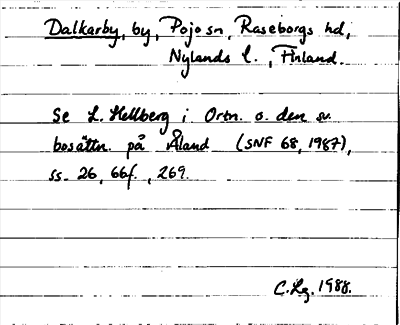 Dalkarby, by, Pojo sn, Raseborgs hd,
Nylands l., Finland.
Se L. Hellberg i Ortn. o. den sv.
bosättn. på Åland (SNF 68, 1987),
ss. 26, 66f., 269.
C.Lg. 1988.